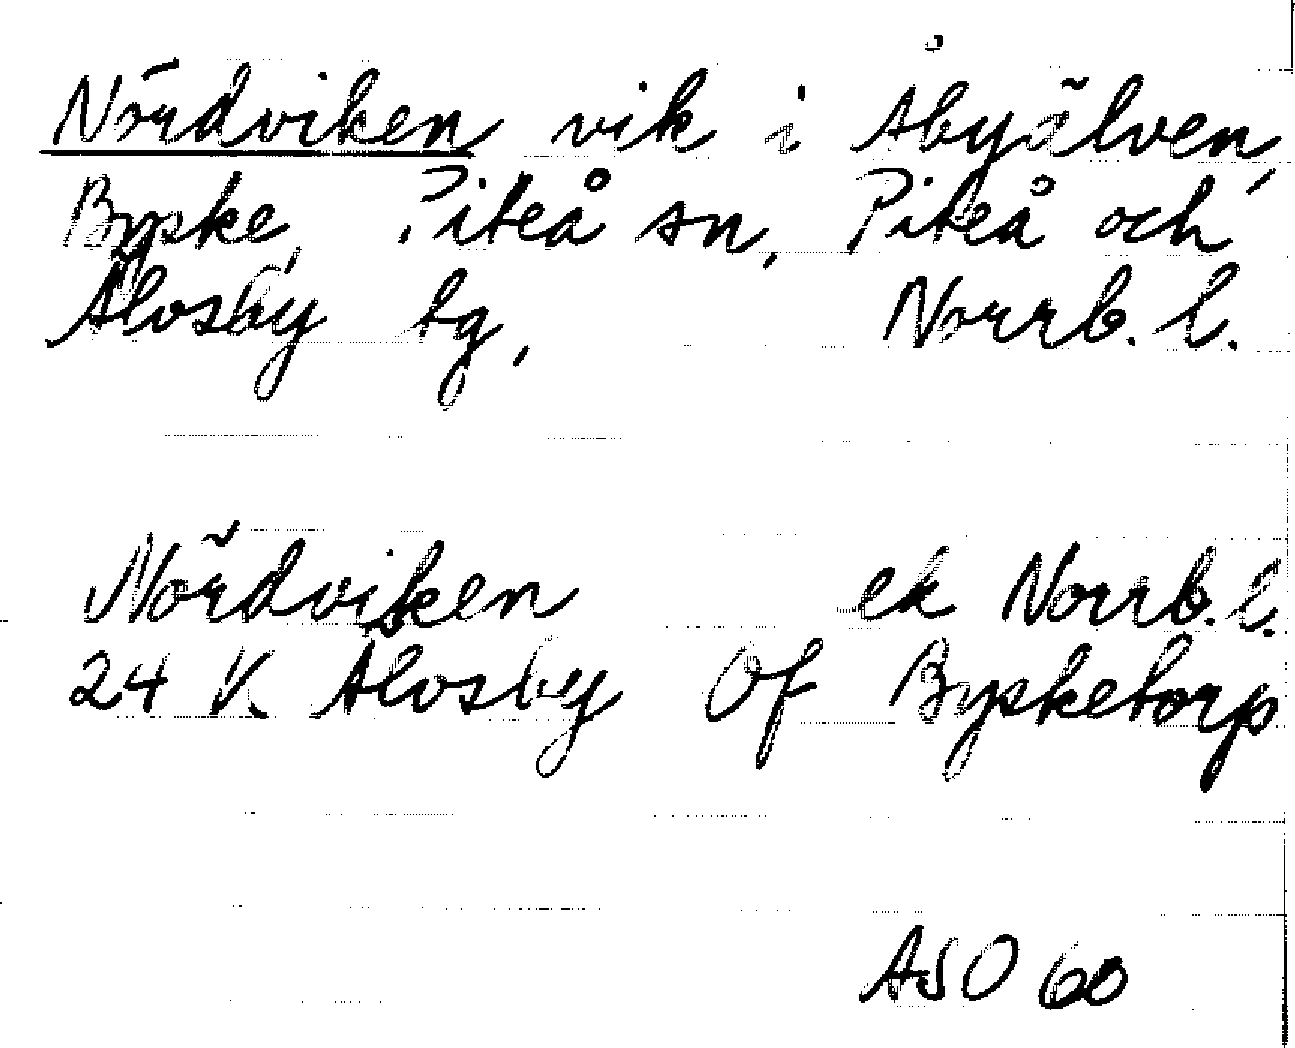 Nördviken vik i Åbyälven,
Byske, Piteå sn, Piteå och
Älvsby tg, Norrb. l.
Nördviken ek Norrb. l.
24 K Älvsby Of Bysketorp
ASO 60